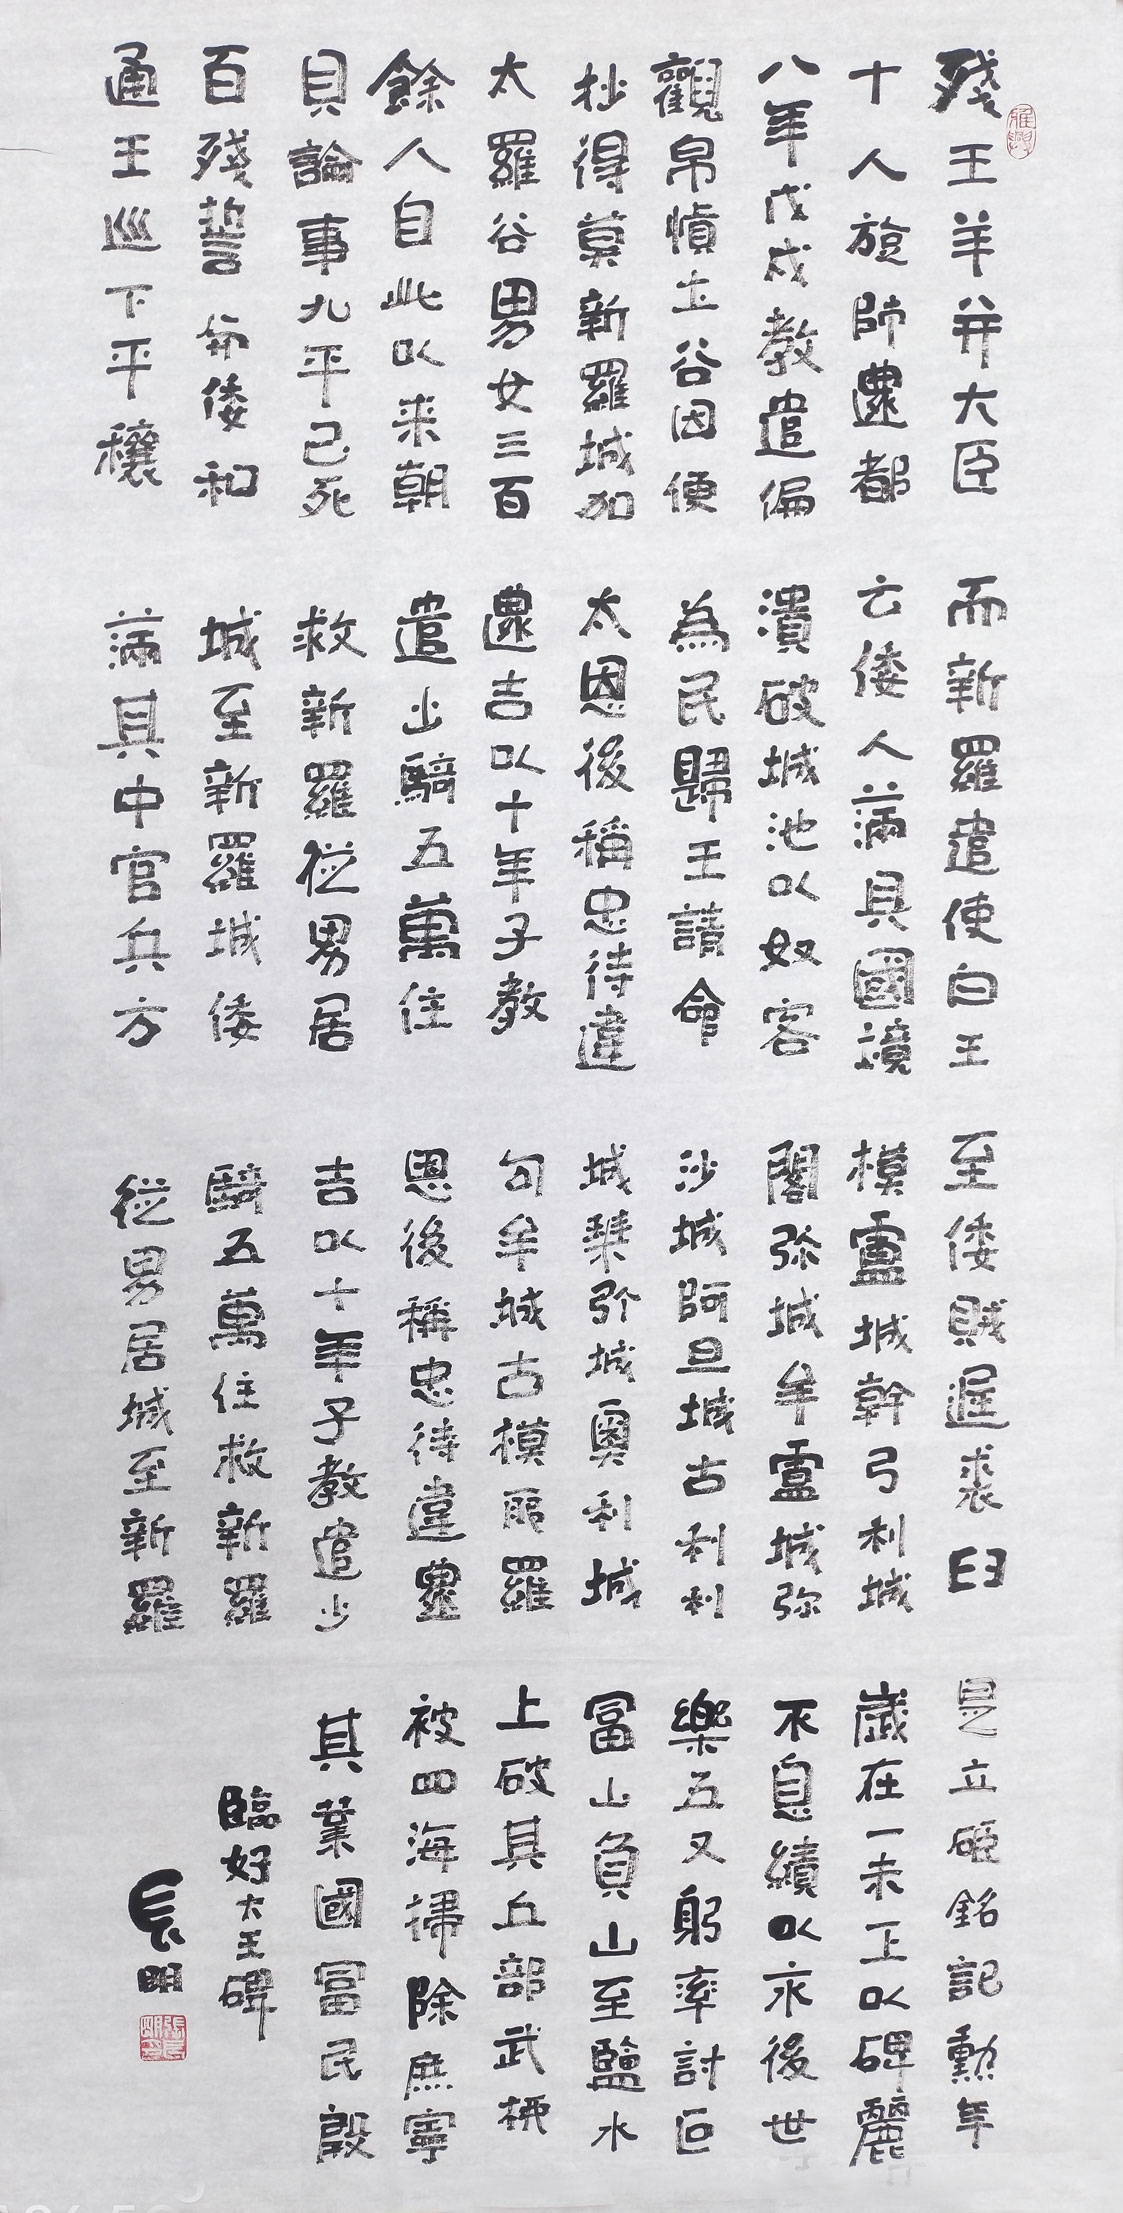 殘王羊并大臣
十人旋師還都
八年戊戌教遣偏
觀帛慎土谷因便
抄得莫新羅城加
太羅谷男女三百
餘人自此以来朝
貝論事九平己死
百殘誓倭和
通王巡下平穰
而新羅遣使白王
云倭人満其國境
潰破城池以奴客
為民歸王請命
太恩後稱忠待違
還吉以十年子教
遣步騎五萬住
救新羅從男居
城至新羅城倭
満其中官兵方
至倭賊退裘臼
模盧城幹弓利城
閣弥城牟盧城弥
沙城阿旦城古利利
城弥城奧利城
句牟城古模耶羅
恩後稱忠待違還
吉以十年子教遣步
騎五萬住救新羅
從男居城至新羅
是立碑銘記勲年
歲在一未上以碑麗
不息績以永後世
樂五又躬率討叵
富山負山至鹽水
上破其丘部武
被四海掃除庶寧
其業國富民殷
臨好大王碑
長明